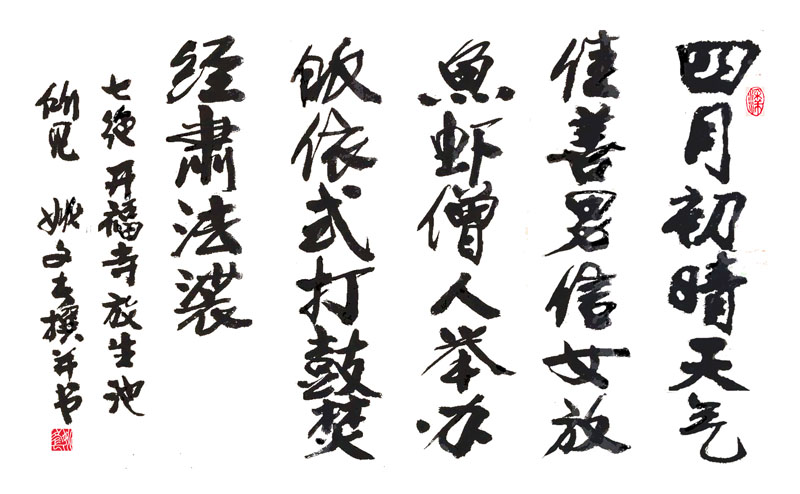 四月初晴天气
佳善男信女放
鱼虾僧人举办
皈依式打鼓焚
经肃法裟
七绝开福寺放生池
所见 姚文去撰并书